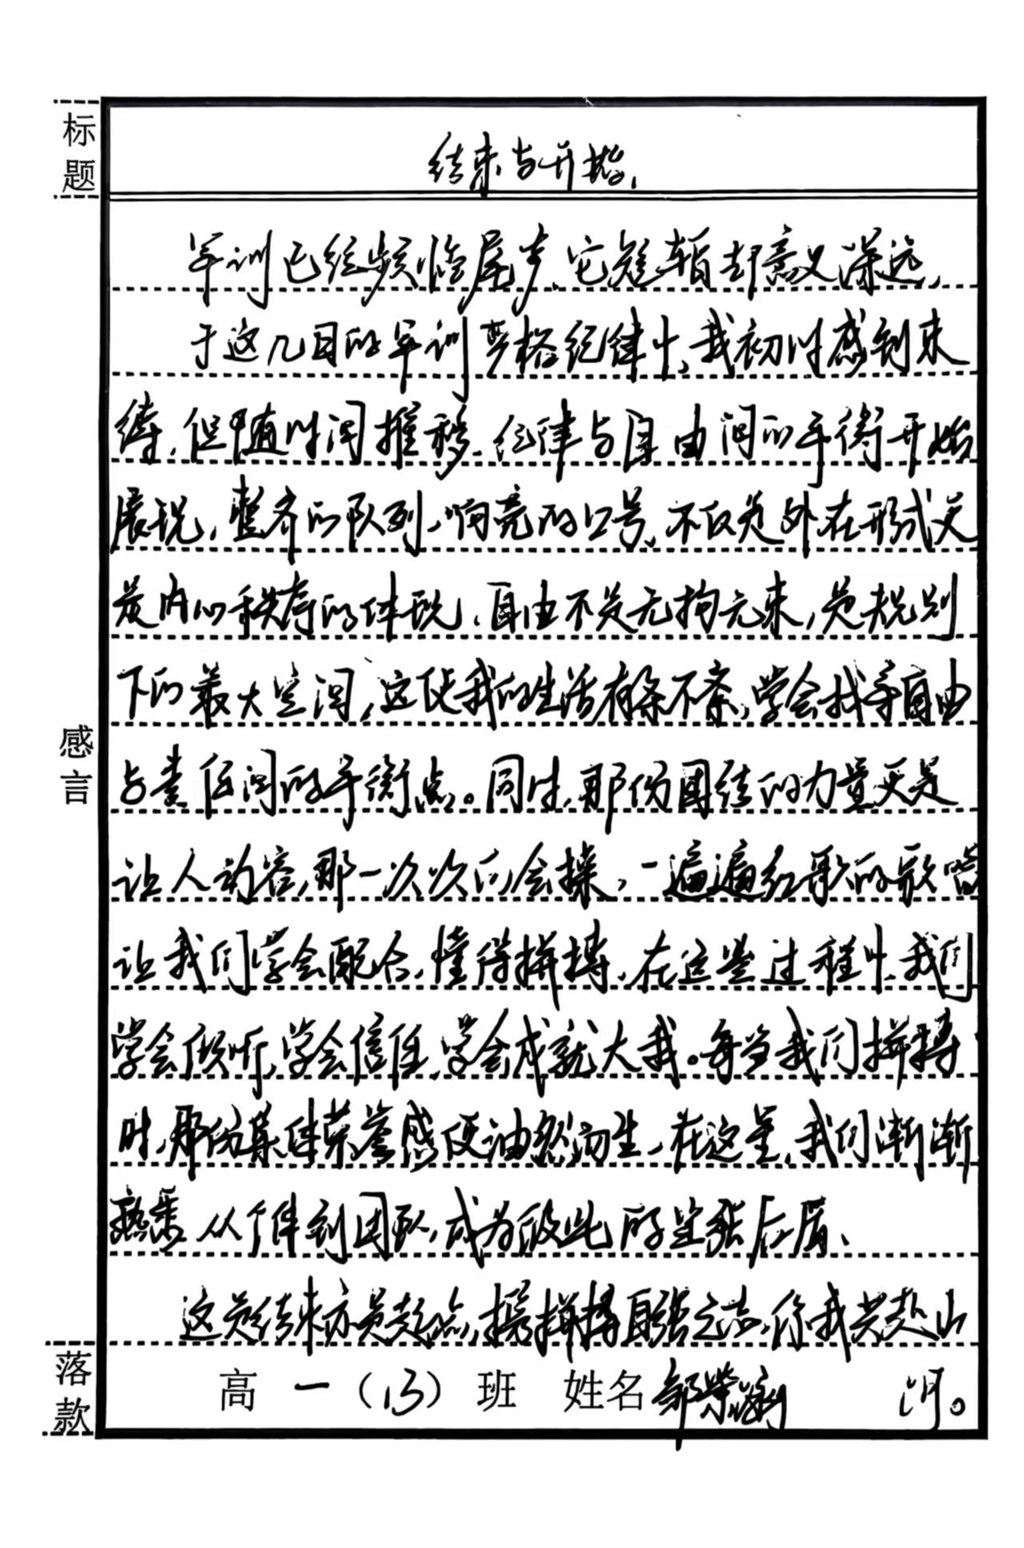 标题
结束与开始
军训已经频临尾声,它短暂却意义深远,
于这几日的军训严格纪律中,我初时感到束
缚,但随时间推移,纪律与自由间的平衡开始
展现,整齐的队列,响亮的口号,不仅是外在形式更
是内心秩序的体现,自由不是无拘无束,是规则
下的最大空间,这使我的生活有条不紊,学会找寻自由
与责任间的平衡点。同时,那份团结的力量更是
让人动容,那一次次的会操,一遍遍红歌的歌唱
让我们学会配合,懂得拼搏,在这些过程中,我们
学会倾听,学会信任,学会成就大我。每当我们拼搏
时,那份集体荣誉感便油然而生,在这里,我们渐渐
熟悉,从个体到团队,成为彼此的坚强后盾、
感言
这是结束亦是起点,携拼搏自强之志,你我共赴山
河。
落款
高一(13)班 姓名 邹荣